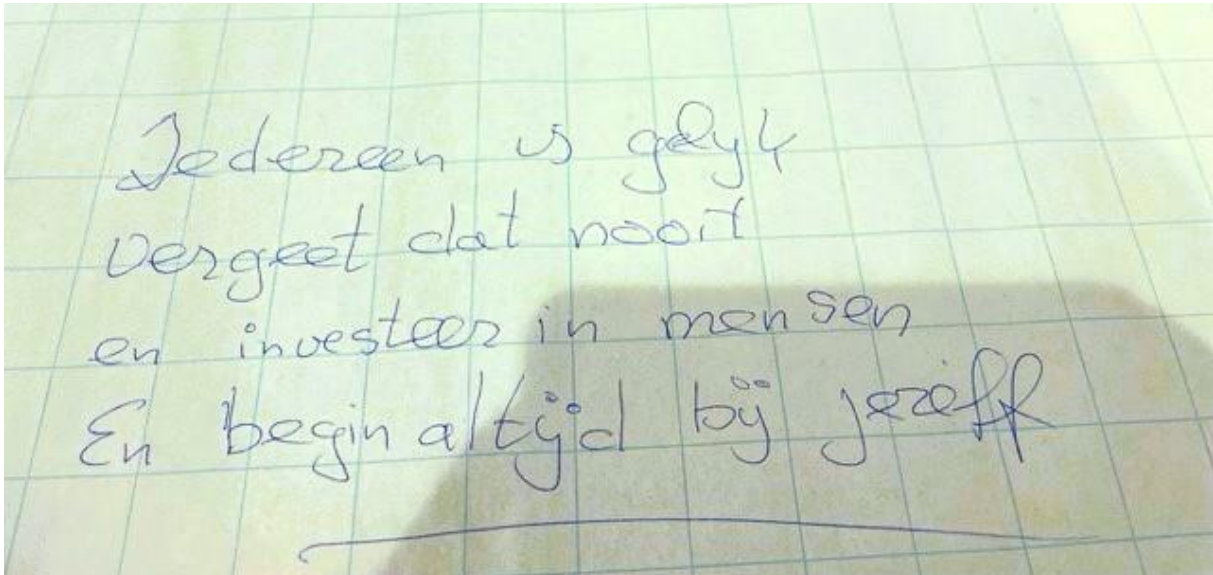 Iedereen is gelyk
vergeet dat nooit
en investeer in mensen
En begin altijd bij jezelf